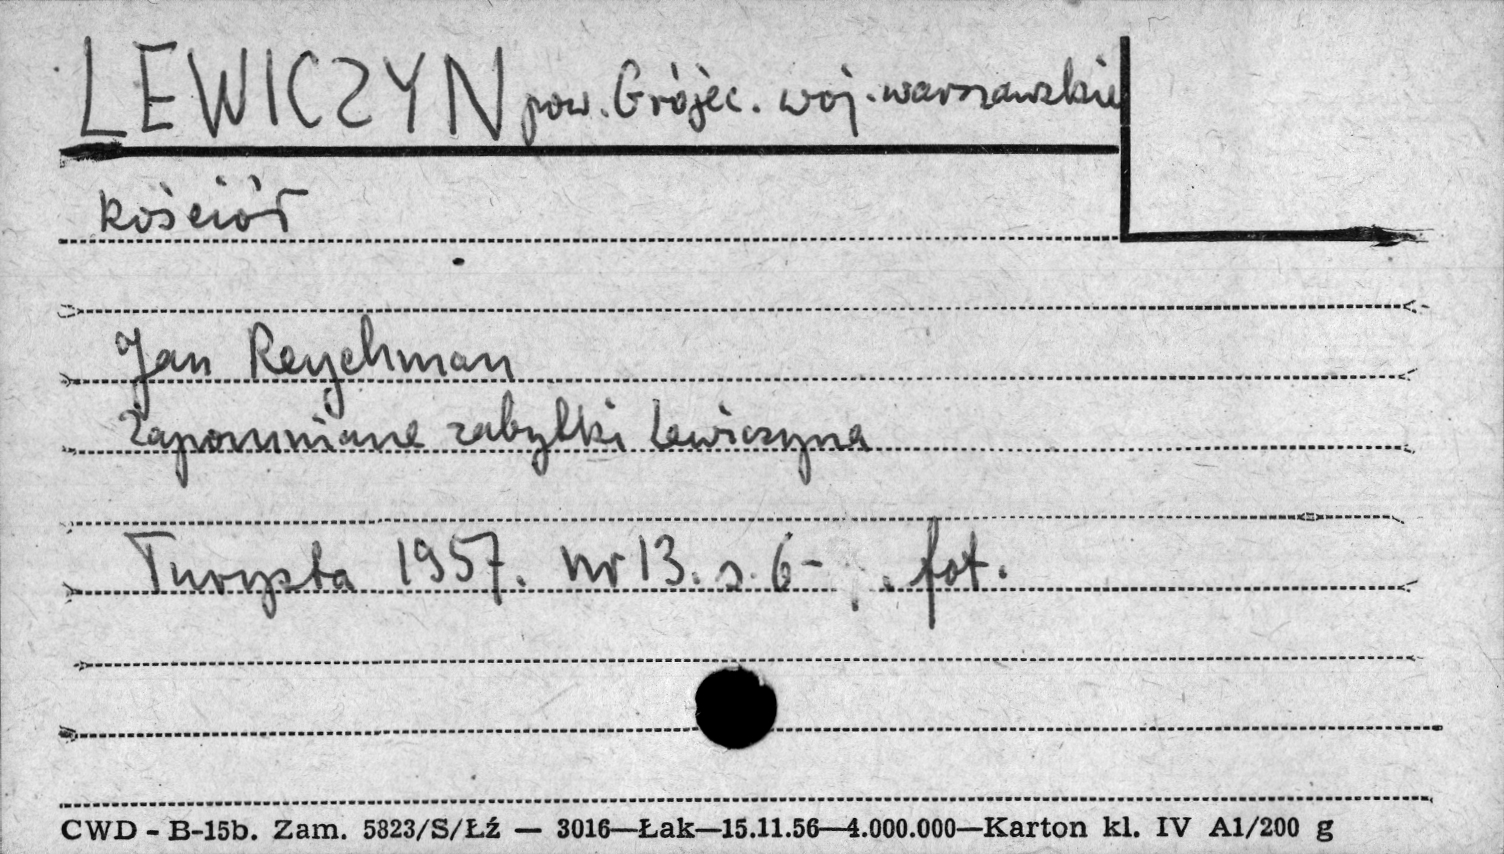 LEWICZYN pow. Grójec. woj. warszawskie
kościół
Jan Reychman
Zapomniane zabytki Lewiczyna
Turysta 1957. nr 13. s. 6- . fot.
CWD - B-15b. Zam. 5823/S/Łź — 3016—Łak—15.11.56—4.000.000—Karton kl. IV A1/200 g